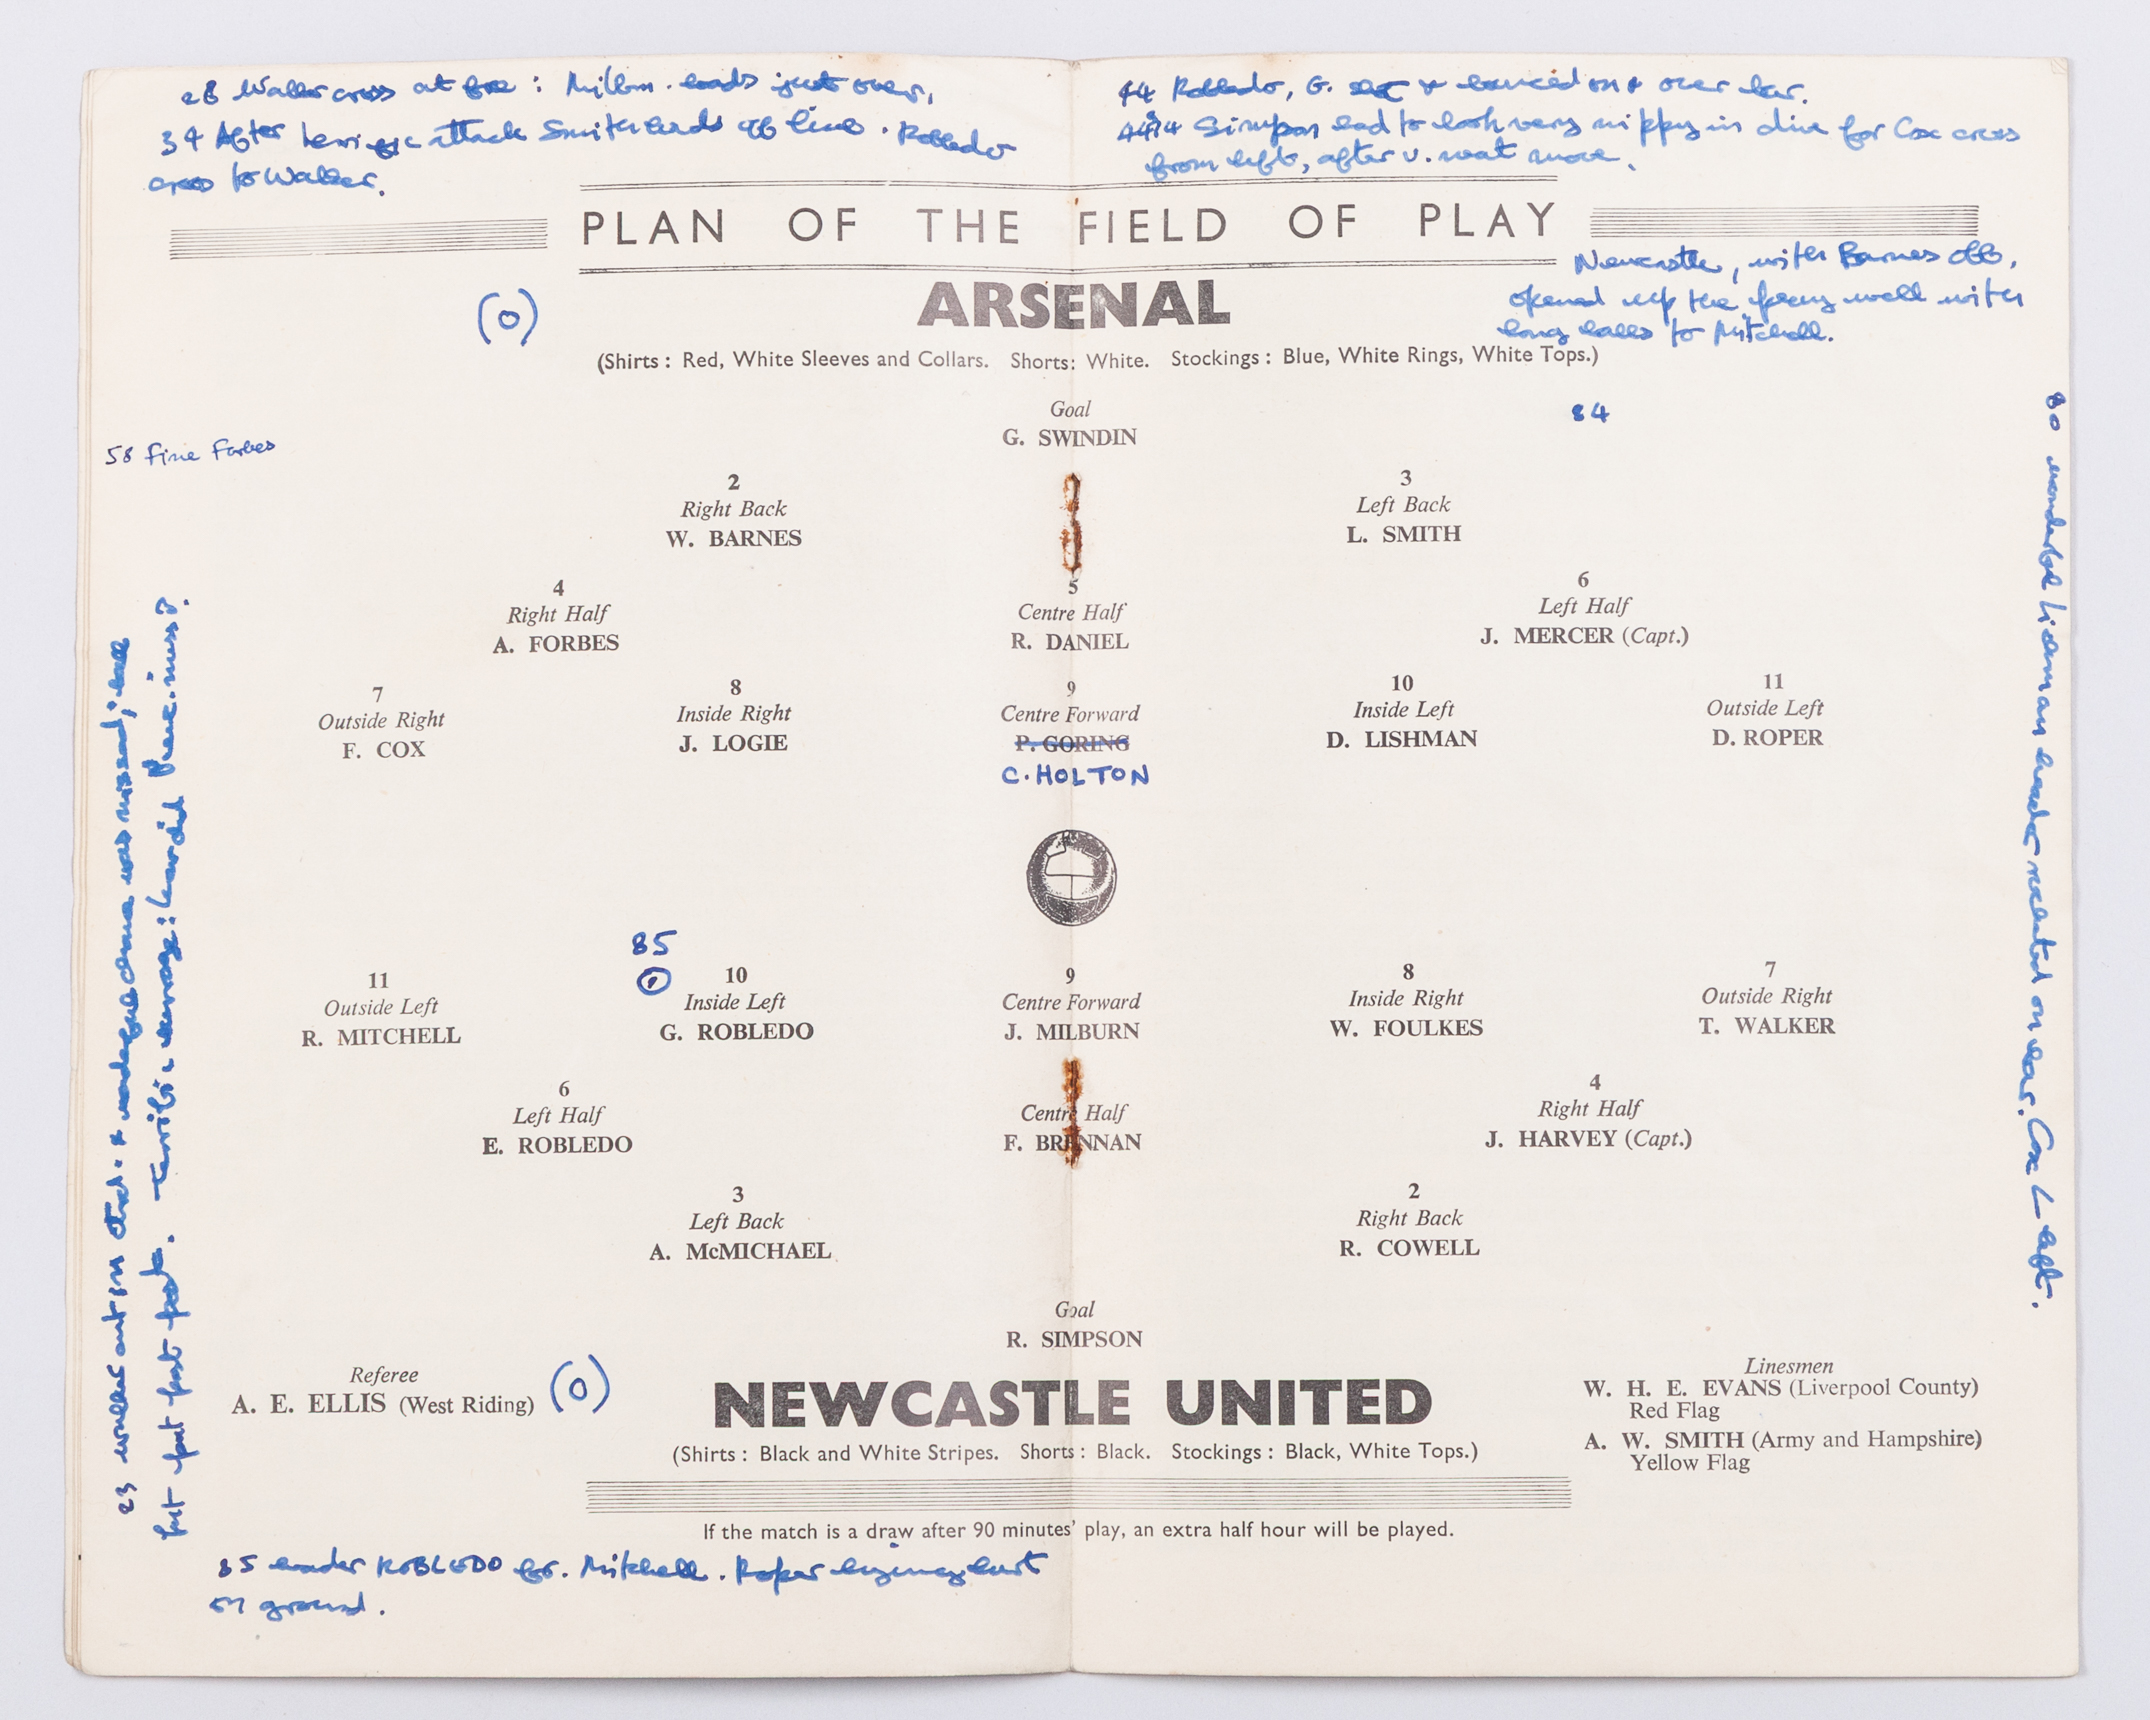 28 Walker cross at : Milbn. heads just over,
34 After attack Smith heads off line. Robledo
cross to Walker.
44 Robledo, G. & bounced on & over bar.
44¾ Simpson had to look very nippy in dive for Cox cross
from left, after v. neat move.
PLAN OF THE FIELD OF PLAY
Newcastle, with Barnes off,
opened up the well with
long balls to Mitchell.
ARSENAL
(0)
(Shirts : Red, White Sleeves and Collars. Shorts: White. Stockings : Blue, White Rings, White Tops.)
Goal
G. SWINDIN
84
58 fine Forbes
2
Right Back
W. BARNES
3
Left Back
L. SMITH
4
Right Half
A. FORBES
5
Centre Half
R. DANIEL
6
Left Half
J. MERCER (Capt.)
7
Outside Right
F. COX
8
Inside Right
J. LOGIE
9
Centre Forward
P. GORING
C. HOLTON
10
Inside Left
D. LISHMAN
11
Outside Left
D. ROPER
80 Lishman header rocketed on bar. Cox Left.
11
Outside Left
R. MITCHELL
85
10
Inside Left
G. ROBLEDO
9
Centre Forward
J. MILBURN
8
Inside Right
W. FOULKES
7
Outside Right
T. WALKER
6
Left Half
E. ROBLEDO
Centre Half
F. BRENNAN
4
Right Half
J. HARVEY (Capt.)
3
Left Back
A. McMICHAEL
2
Right Back
R. COWELL
Goal
R. SIMPSON
23 was missed; ball
hit far post. : how did miss?
Referee
A. E. ELLIS (West Riding)
(0)
NEWCASTLE UNITED
(Shirts : Black and White Stripes. Shorts : Black. Stockings : Black, White Tops.)
Linesmen
W. H. E. EVANS (Liverpool County)
Red Flag
A. W. SMITH (Army and Hampshire)
Yellow Flag
If the match is a draw after 90 minutes' play, an extra half hour will be played.
85 header ROBLEDO fr. Mitchell. Roper lying hurt
on ground.